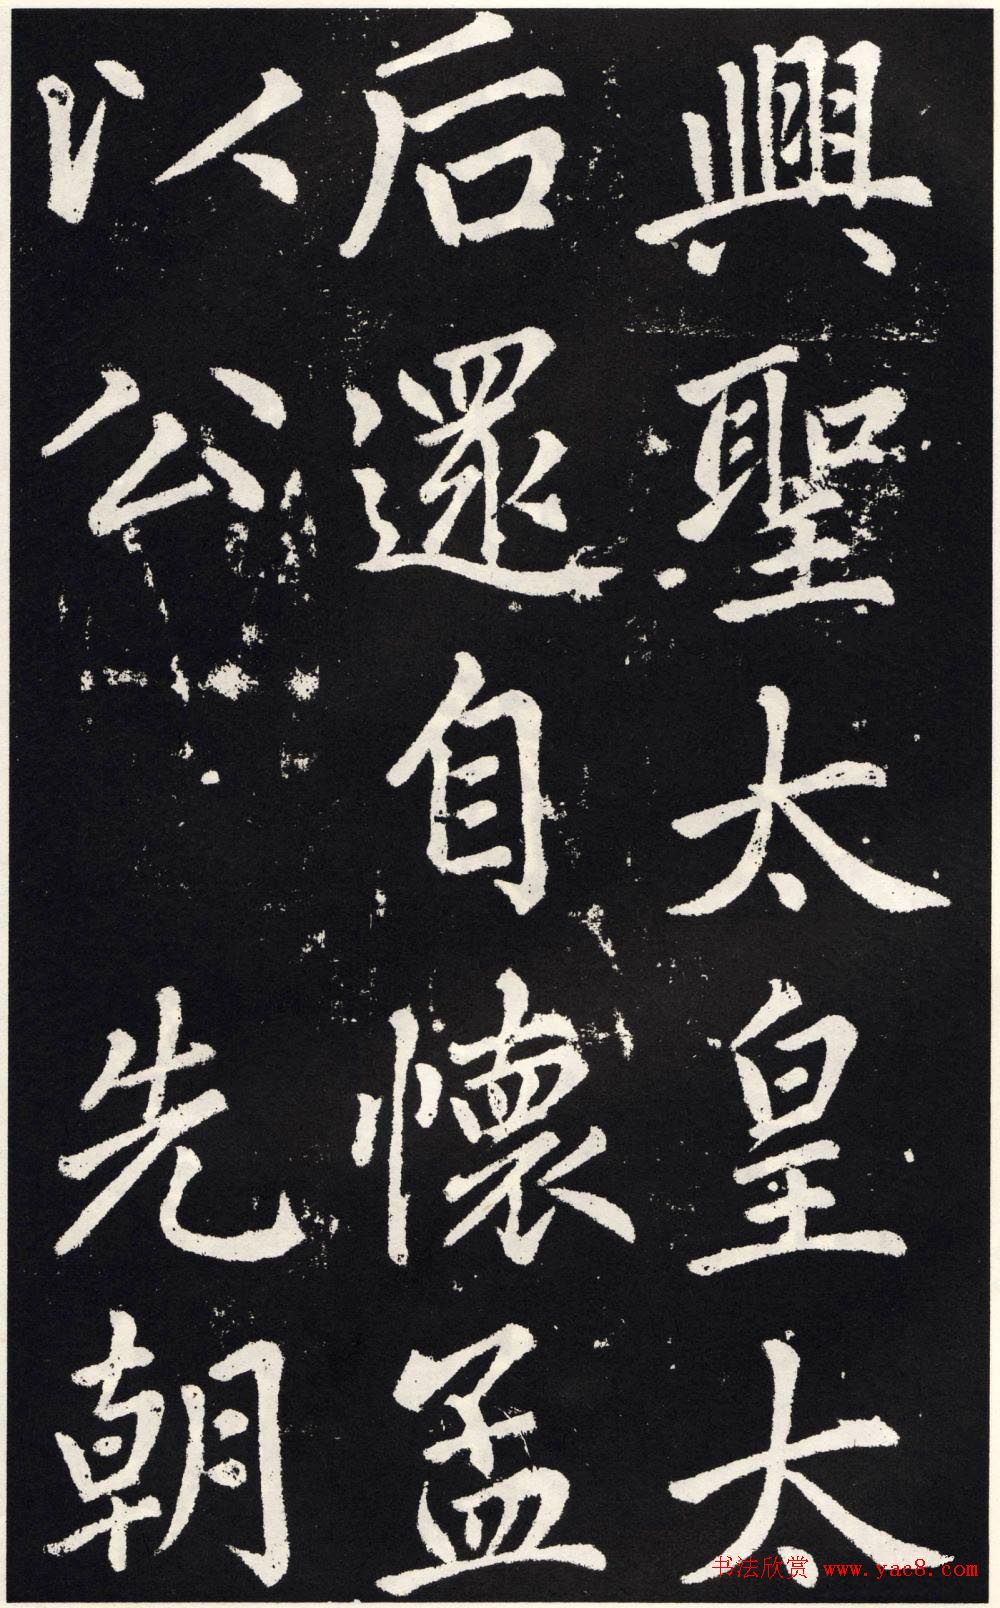 興聖太皇太
后還自懷孟
以公先朝
书法欣赏 www.yac8.com